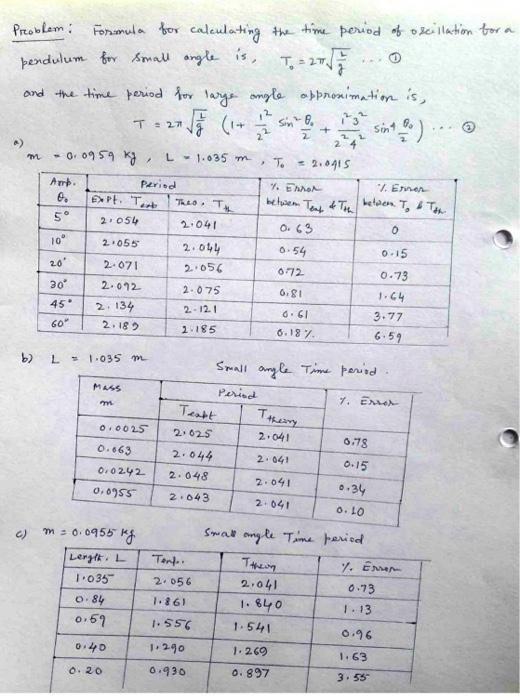 Problem: Formula for calculating the time period of oscillation for a
pendulum for small angle is, T₀ = 2π√(L/g) ... ①
and the time period for large angle approximation is,
T = 2π√(L/g) (1 + 1²/2² sin² θ₀/2 + 1²3²/2²4² sin⁴ θ₀/2) ... ②
a)
m = 0.0959 kg, L = 1.035 m, T₀ = 2.0415
Amp. θ₀ | Period | % Error between Texpt & Tth | % Error between T₀ & Tth
Expt. Texpt | Theo. Tth
5° | 2.054 | 2.041 | 0.63 | 0
10° | 2.055 | 2.044 | 0.54 | 0.15
20° | 2.071 | 2.056 | 0.72 | 0.73
30° | 2.092 | 2.075 | 0.81 | 1.64
45° | 2.134 | 2.121 | 0.61 | 3.77
60° | 2.189 | 2.185 | 0.18% | 6.59
b) L = 1.035 m
Small angle Time period.
Mass m | Period | % Error
Texpt | Ttheory
0.0025 | 2.025 | 2.041 | 0.78
0.063 | 2.044 | 2.041 | 0.15
0.0242 | 2.048 | 2.041 | 0.34
0.0955 | 2.043 | 2.041 | 0.10
c) m = 0.0955 kg
Small angle Time period
Length, L | Texp. | Ttheory | % Error
1.035 | 2.056 | 2.041 | 0.73
0.84 | 1.861 | 1.840 | 1.13
0.59 | 1.556 | 1.541 | 0.96
0.40 | 1.290 | 1.269 | 1.63
0.20 | 0.930 | 0.897 | 3.55